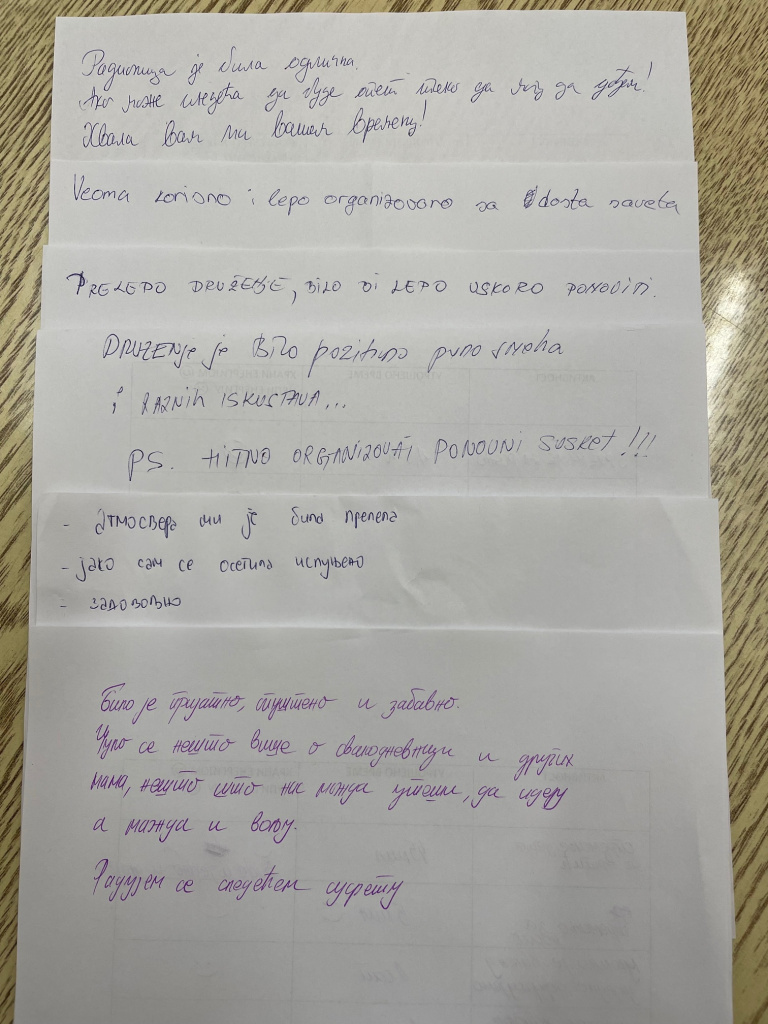 Радионица је била одлична.
Ако може следећа да буде опет преко да могу да дођем!
Хвала Вам на вашем времену!
Veoma korisno i lepo organizovano sa dosta saveta
PRELEPO DRUŽENJE, BILO BI LEPO USKORO PONOVITI.
DRUŽENJE je Bilo pozitivno puno smeha
i RAZNIH ISKUSTAVA...
PS. HITNO ORGANIZOVATI PONOVNI SUSRET!!!
- Атмосвера ми је била прелепа
- јако сам се осетила испуњено
- задовољно
Било је пријатно, опуштено и забавно.
Чуло се нешто више о свакодневници и других
мама, нешто што нас можда утеши, да идеју
а можда и вољу.
Радујем се следећем сусрету